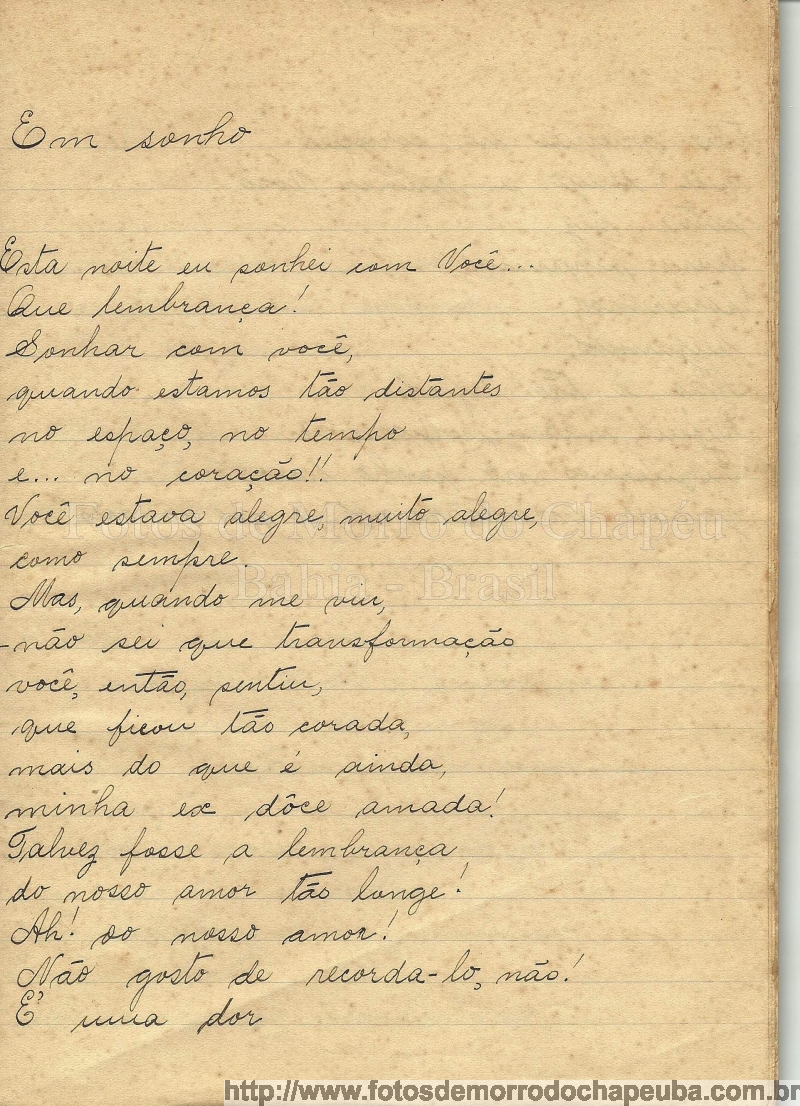 Em sonho
Esta noite eu sonhei com Você...
Que lembrança!
Sonhar com você,
quando estamos tão distantes
no espaço, no tempo
e... no coração!!
Você estava alegre, muito alegre,
Fotos de Morro do Chapeu
como sempre.
Bahia - Brasil
Mas, quando me viu,
-não sei que transformação
você, então, sentiu,
que ficou tão corada,
mais do que é ainda,
minha ex dôce amada!
Talvez fosse a lembrança
do nosso amor tão longe!
Ah! do nosso amor!
Não gosto de recorda-lo, não!
E' uma dor
http://www.fotosdemorrodochapeuba.com.br